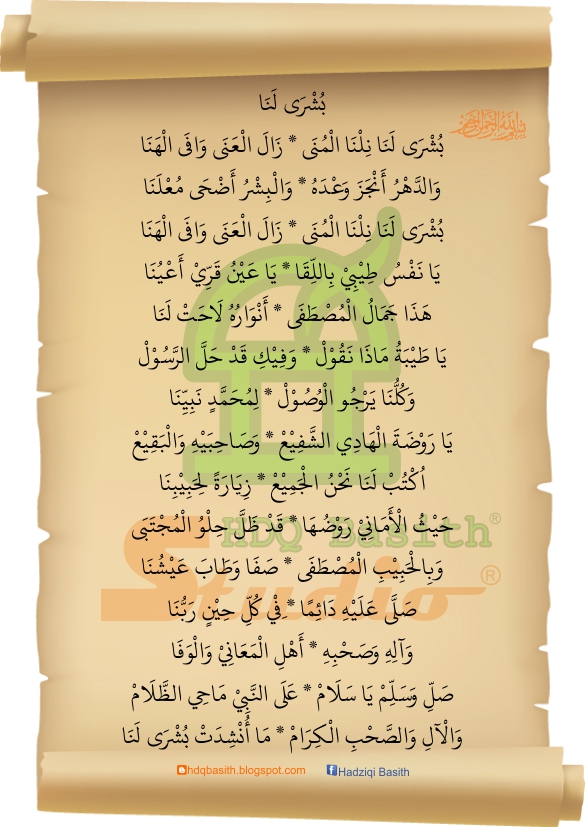 بُشْرَى لَنَا
بُشْرَى لَنَا نِلْنَا الْمُنَى * زَالَ الْعَنَى وَافَى الْهَنَا
وَالدَّهْرُ أَنْجَزَ وَعْدَهُ * وَالْبِشْرُ أَضْحَى مُعْلَنَا
بُشْرَى لَنَا نِلْنَا الْمُنَى * زَالَ الْعَنَى وَافَى الْهَنَا
يَا نَفْسُ طِيْبِيْ بِاللِّقَا * يَا عَيْنُ قَرِّيْ أَعْيُنَا
هَذَا جَمَالُ الْمُصْطَفَى * أَنْوَارُهُ لَاحَتْ لَنَا
يَا طَيْبَةُ مَاذَا نَقُوْلْ * وَفِيْكِ قَدْ حَلَّ الرَّسُوْلْ
وَكُلُّنَا يَرْجُو الْوُصُوْلْ * لِمُحَمَّدٍ نَبِيِّنَا
يَا رَوْضَةَ الْهَادِي الشَّفِيْعْ * وَصَاحِبَيْهِ وَالْبَقِيْعْ
اُكْتُبْ لَنَا نَحْنُ الْجَمِيْعْ * زِيَارَةً لِحَبِيْبِنَا
حَيْثُ الْأَمَانِيْ رَوْضُهَا * قَدْ ظَلَّ حِلْوُ الْمُجْتَبَى
HDQ Basith®
وَبِالْحَبِيْبِ الْمُصْطَفَى * صَفَا وَطَابَ عَيْشُنَا
Studio®
صَلَّى عَلَيْهِ دَائِمًا * فِيْ كُلِّ حِيْنٍ رَبُّنَا
وَآلِهِ وَصَحْبِهِ * أَهْلِ الْمَعَانِيْ وَالْوَفَا
صَلِّ وَسَلِّمْ يَا سَلَامْ * عَلَى النَّبِيْ مَاحِي الظَّلَامْ
وَالْآلِ وَالصَّحْبِ الْكِرَامْ * مَا أُنْشِدَتْ بُشْرَى لَنَا
hdqbasith.blogspot.com Hadziqi Basith